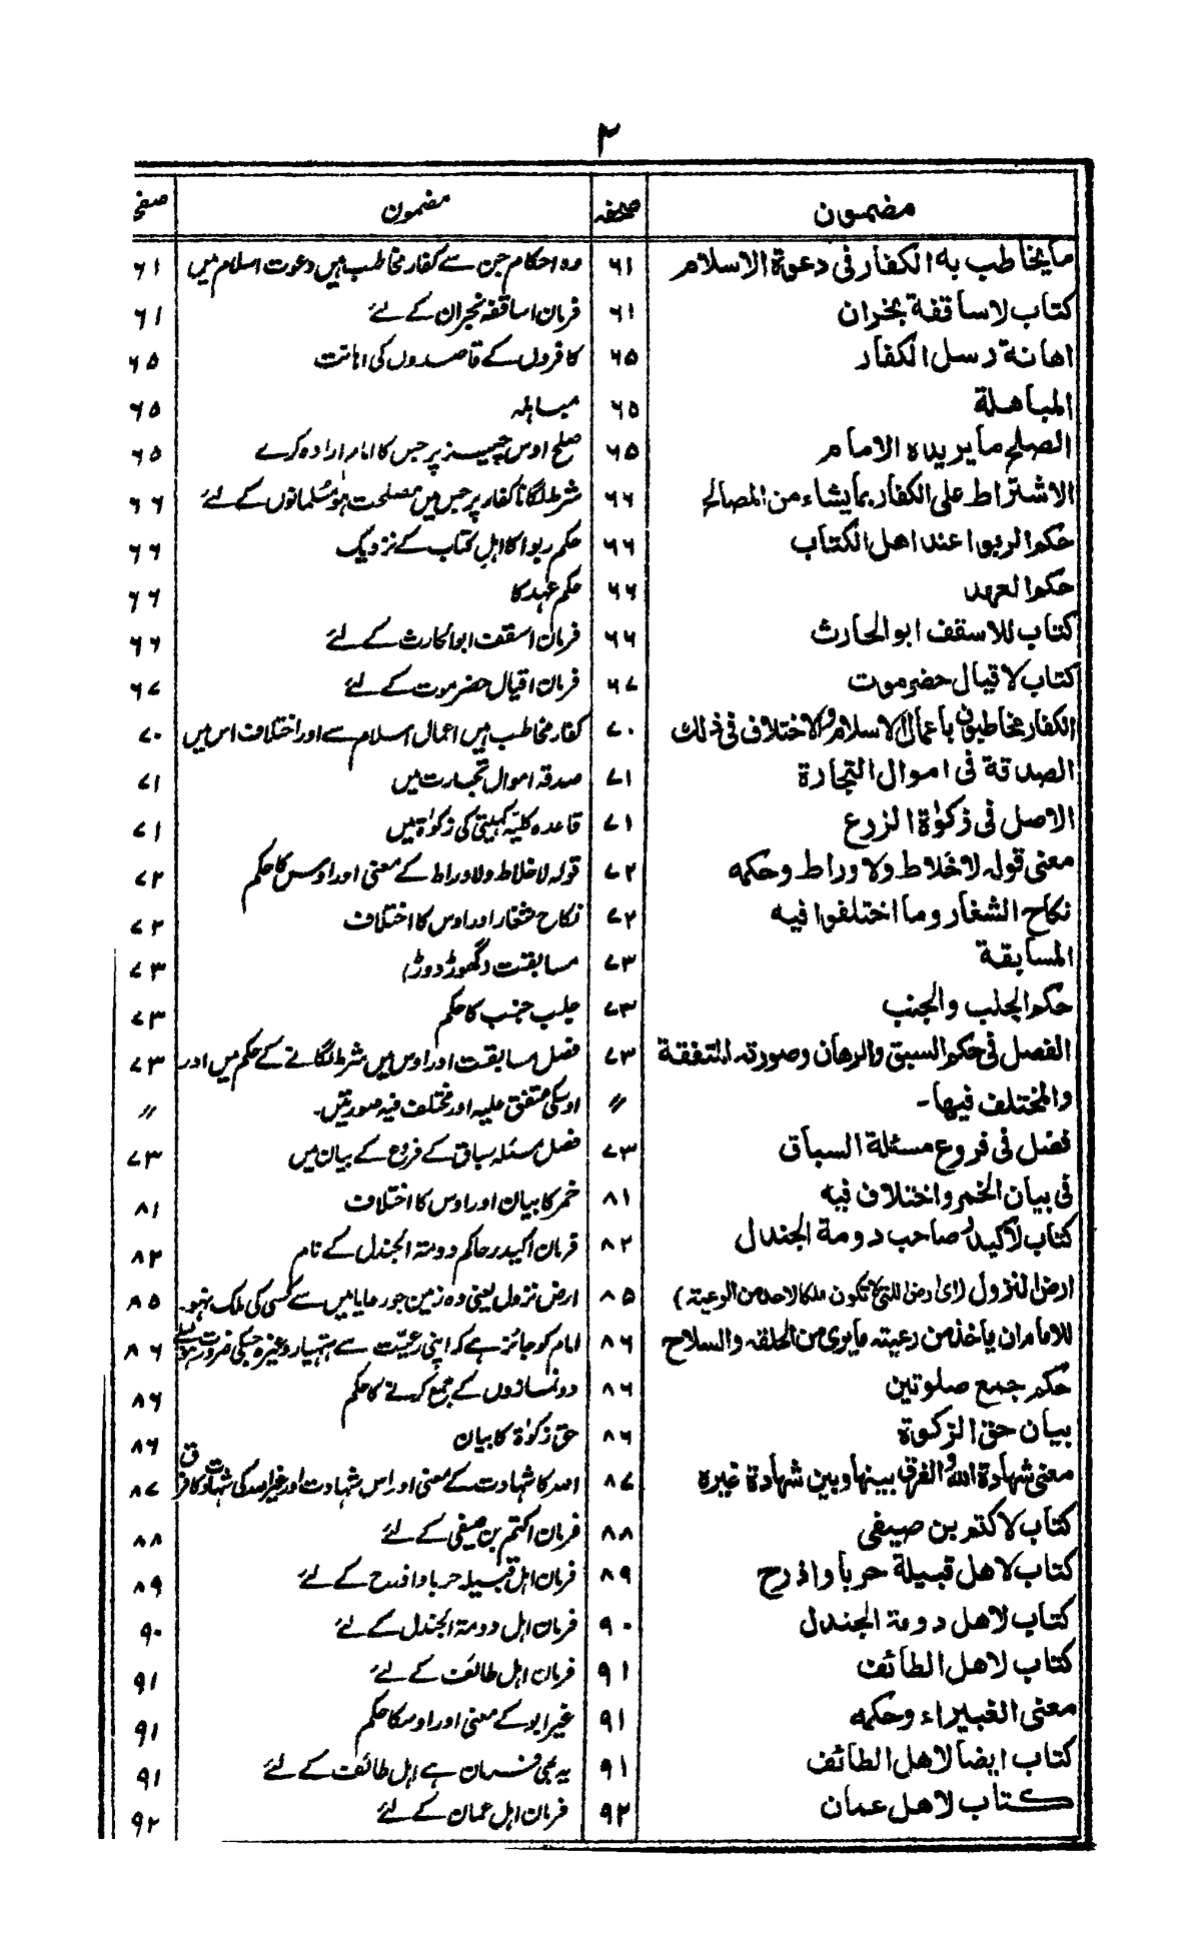 ۲
مضمون صفحہ مضمون صفحہ
ما یخاطب به الکفار فی دعوة الاسلام ۶۱ وہ احکام جن سے کفار مخاطب ہیں دعوت اسلام میں ۶۱
کتاب لاساقفة بخران ۶۱ فرمان اساقفہ نجران کے لئے ۶۱
اهانة رسل الکفار ۶۵ کافروں کے قاصدوں کی اہانت ۶۵
المباهلة ۶۵ مباہلہ ۶۵
الصلح ما یریده الامام ۶۵ صلح اوس چیز پر جس کا امام ارادہ کرے ۶۵
الاشتراط علی الکفار بما یشاء من المصالح ۶۶ شرط لگانا کفار پر جس میں مصلحت ہو مسلمانوں کے لئے ۶۶
حکم الربوا عند اهل الکتاب ۶۶ حکم ربوا کا اہل کتاب کے نزدیک ۶۶
حکم العهد ۶۶ حکم عہد کا ۶۶
کتاب للاسقف ابو الحارث ۶۶ فرمان اسقف ابو الحارث کے لئے ۶۶
کتاب لاقیال حضرموت ۶۷ فرمان اقیال حضرموت کے لئے ۶۷
الکفار مخاطبون باعمال الاسلام والاختلاف فی ذلك ۷۰ کفار مخاطب ہیں اعمال اسلام سے اور اختلاف اس میں ۷۰
الصدقة فی اموال التجارة ۷۱ صدقہ اموال تجارت میں ۷۱
الاصل فی زکوٰة الزرع ۷۱ قاعدہ کلیہ کہیتی کی زکوٰۃ میں ۷۱
معنی قوله لاخلاط ولا وراط وحکمه ۷۲ قولہ لاخلاط ولا وراط کے معنی اور اوس کا حکم ۷۲
نکاح الشغار وما اختلفوا فیه ۷۲ نکاح شغار اور اوس کا اختلاف ۷۲
المسابقة ۷۳ مسابقت (گھوڑ دوڑ) ۷۳
حکم الجلب والجنب ۷۳ جلب جنب کا حکم ۷۳
الفصل فی حکم السبق والرهان وصورته المتفقة ۷۳ فصل مسابقت اور اوس میں شرط لگانے کے حکم میں اور ۷۳
والمختلف فیها۔ 〃 اوسکی متفق علیہ اور مختلف فیہ صورتیں۔ 〃
فصل فی فروع مسئلة السباق ۷۳ فصل مسئلہ سباق کے فروع کے بیان میں ۷۳
فی بیان الخمر واختلاف فیه ۸۱ خمر کا بیان اور اوس کا اختلاف ۸۱
کتاب لاکیدر صاحب دومة الجندل ۸۲ فرمان اکیدر حاکم دومۃ الجندل کے نام ۸۲
ارض النزول (ای ارض التی لا تکون ملکا لاحد من الرعیة) ۸۵ ارض نزول یعنی وہ زمین جو رعایا میں سے کسی کی ملک نہو۔ ۸۵
للامام ان یاخذ من رعیته ما یری من الحلقه والسلاح ۸۶ امام کو جائز ہے کہ اپنی رعیت سے ہتہیار وغیرہ جسکی ضرورت ۸۶
حکم جمع صلوتین ۸۶ دو نمازوں کے جمع کرنے کا حکم ۸۶
بیان حق الزکوة ۸۶ حق زکوٰۃ کا بیان ۸۶
معنی شهادة الله والفرق بینها وبین شهادة غیره ۸۷ اللہ کا شہادت کے معنی اور اس شہادت اور غیر اللہ کی شہادت کا فرق ۸۷
کتاب لاکثم بن صیفی ۸۸ فرمان اکثم بن صیفی کے لئے ۸۸
کتاب لاهل قبیلة حربا واذرح ۸۹ فرمان اہل قبیلہ حربا واذرح کے لئے ۸۹
کتاب لاهل دومة الجندل ۹۰ فرمان اہل دومۃ الجندل کے لئے ۹۰
کتاب لاهل الطائف ۹۱ فرمان اہل طائف کے لئے ۹۱
معنی الغبیراء وحکمه ۹۱ غبیراء کے معنی اور اوسکا حکم ۹۱
کتاب ایضاً لاهل الطائف ۹۱ یہ بھی فرمان ہے اہل طائف کے لئے ۹۱
کتاب لاهل عمان ۹۲ فرمان اہل عمان کے لئے ۹۲